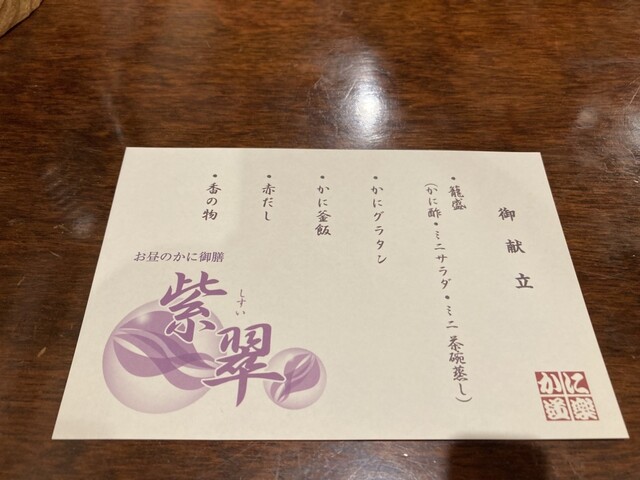 御献立
• 籠盛
(かに酢・ミニサラダ・ミニ茶碗蒸し)
• かにグラタン
• かに釜飯
• 赤だし
• 香の物
お昼のかに御膳
紫翠
しすい
かに道楽